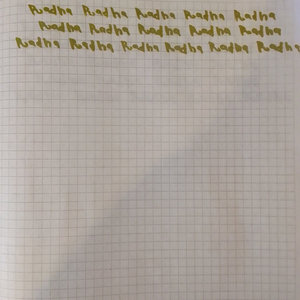 Radha Radha Radha Radha Radha
Radha Radha Radha Radha Radha
Radha Radha Radha Radha Radha Radha